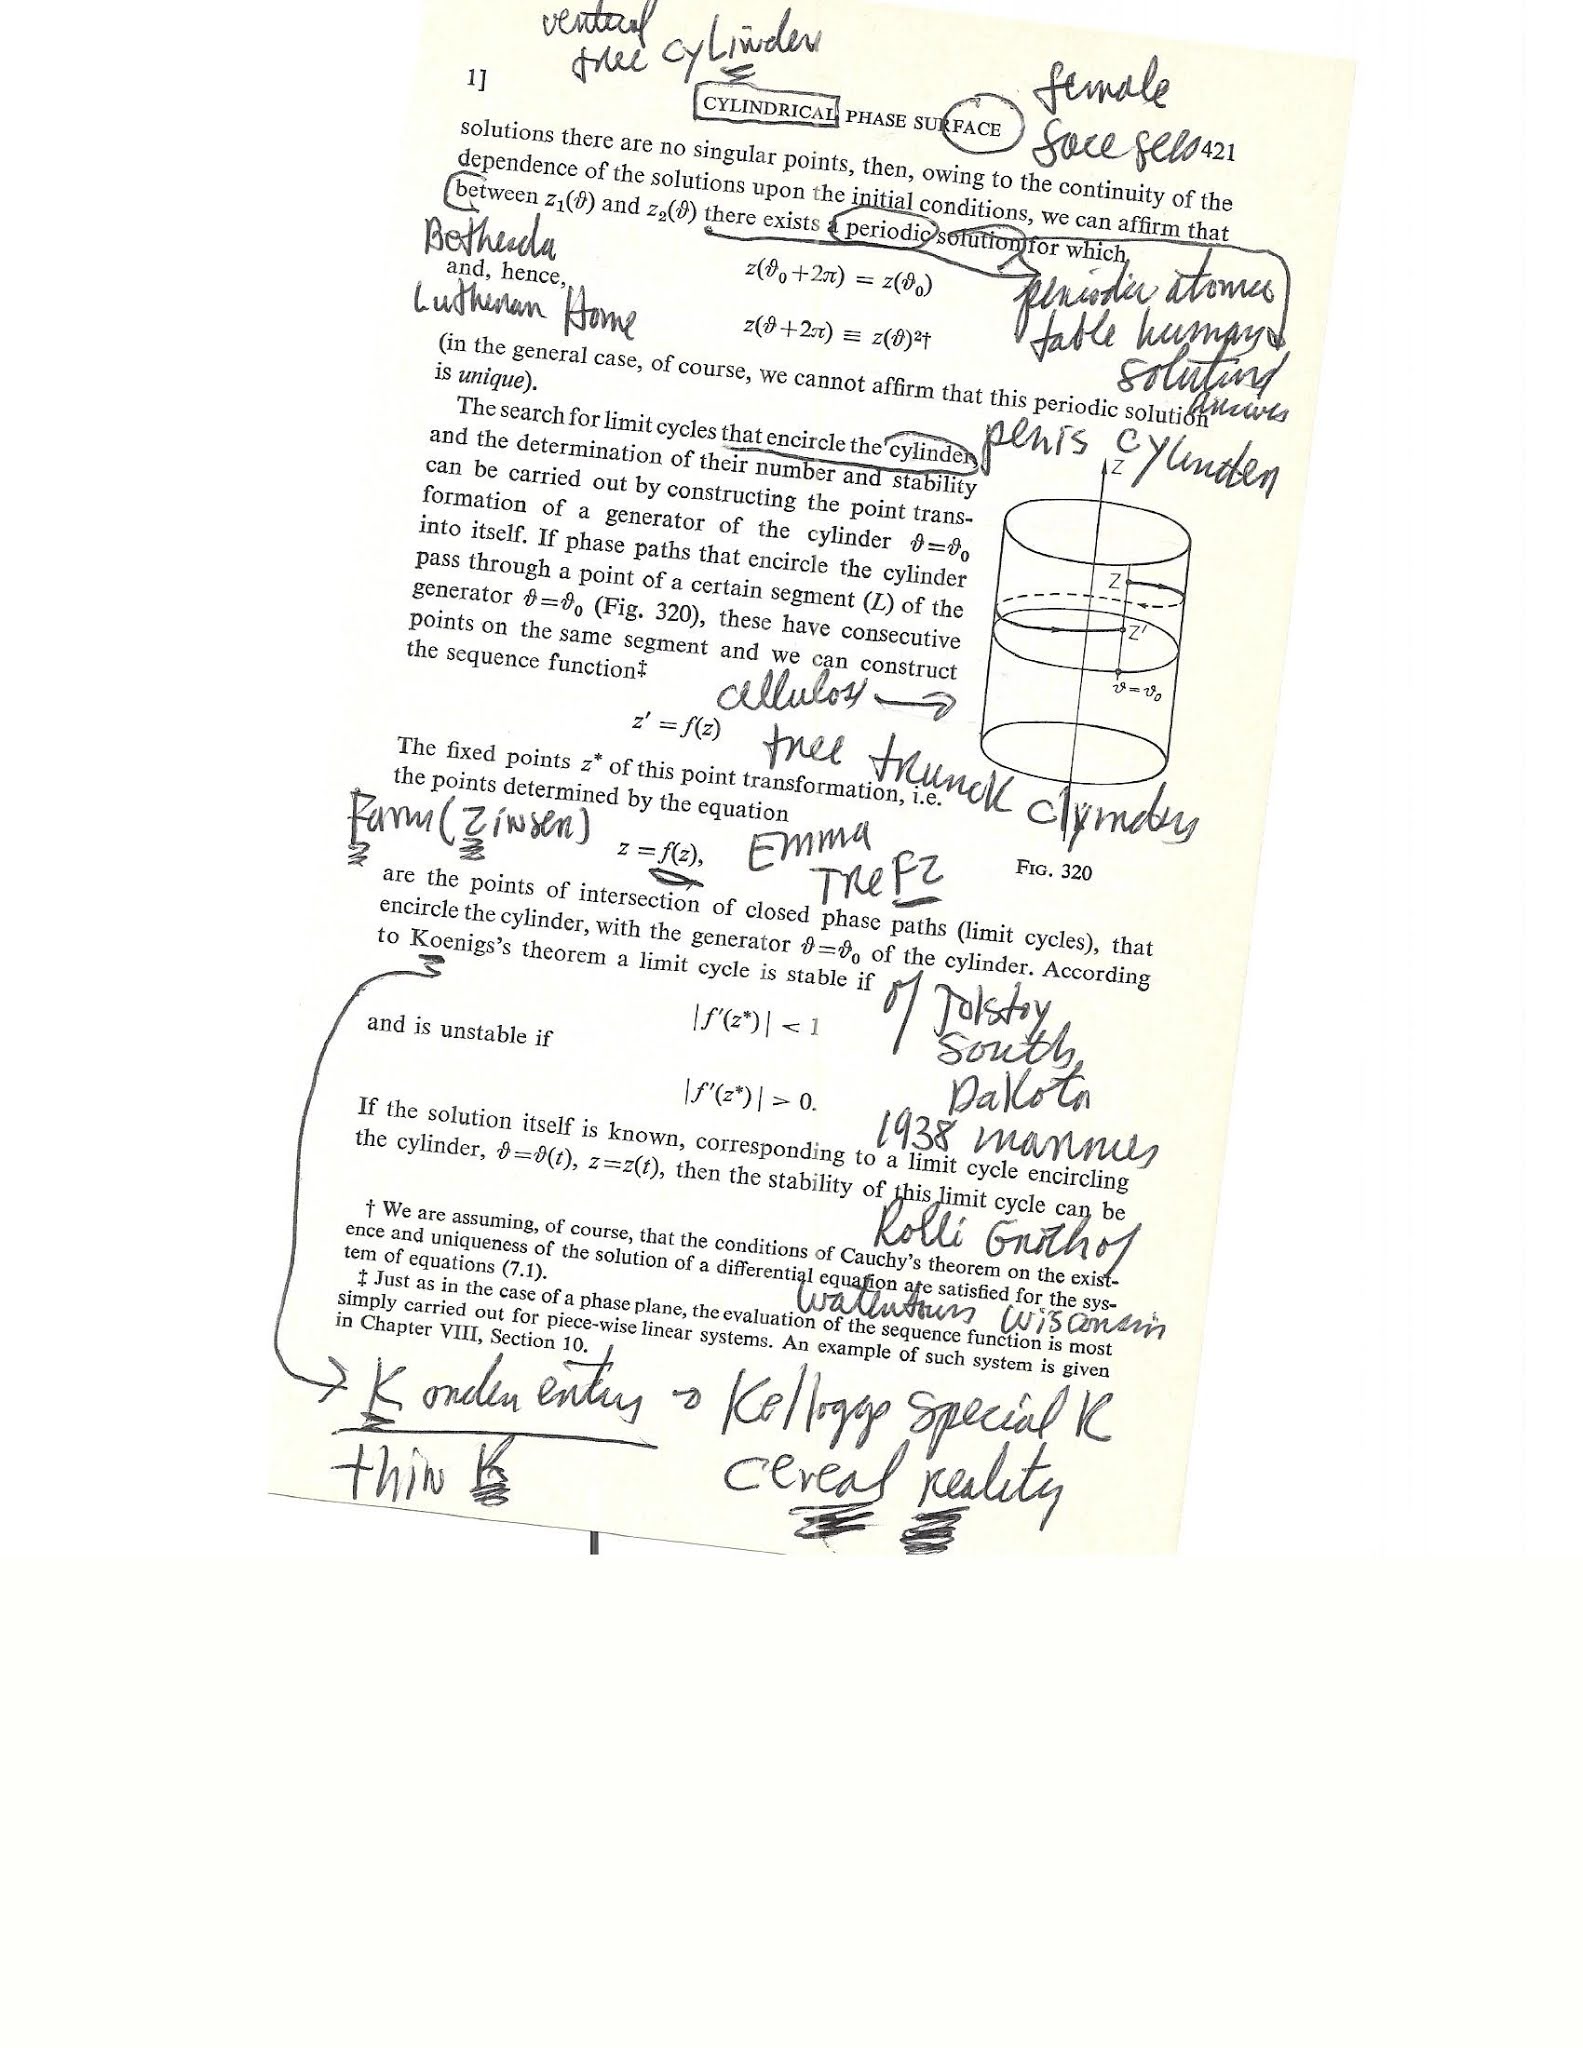 vertical
tree cylinder
1]
CYLINDRICAL PHASE SURFACE
female
face gels
421
solutions there are no singular points, then, owing to the continuity of the
dependence of the solutions upon the initial conditions, we can affirm that
between z₁(ϑ) and z₂(ϑ) there exists a periodic solution for which
Bethesda
z(ϑ₀+2π) = z(ϑ₀)
periodic atomic
and, hence,
Lutheran Home
z(ϑ+2π) ≡ z(ϑ)²†
table human
solution
(in the general case, of course, we cannot affirm that this periodic solution
is unique).
The search for limit cycles that encircle the cylinder
penis cylinder
and the determination of their number and stability
can be carried out by constructing the point trans-
formation of a generator of the cylinder ϑ=ϑ₀
into itself. If phase paths that encircle the cylinder
pass through a point of a certain segment (L) of the
generator ϑ=ϑ₀ (Fig. 320), these have consecutive
points on the same segment and we can construct
the sequence function‡
Z
Z
Z'
ϑ=ϑ₀
cellulose
z' = f(z)
tree trunk
The fixed points z* of this point transformation, i.e.
the points determined by the equation
Farm (Zinsen)
z = f(z),
Emma
TreFZ
FIG. 320
are the points of intersection of closed phase paths (limit cycles), that
encircle the cylinder, with the generator ϑ=ϑ₀ of the cylinder. According
to Koenigs's theorem a limit cycle is stable if
of Tolstoy
|f'(z*)| < 1
South
and is unstable if
Dakota
|f'(z*)| > 0.
1938 marries
If the solution itself is known, corresponding to a limit cycle encircling
the cylinder, ϑ=ϑ(t), z=z(t), then the stability of this limit cycle can be
Rolli Grothof
† We are assuming, of course, that the conditions of Cauchy's theorem on the exist-
ence and uniqueness of the solution of a differential equation are satisfied for the sys-
tem of equations (7.1).
Watertown Wisconsin
‡ Just as in the case of a phase plane, the evaluation of the sequence function is most
simply carried out for piece-wise linear systems. An example of such system is given
in Chapter VIII, Section 10.
K order entry → Kelloggs Special K
thin K
cereal reality